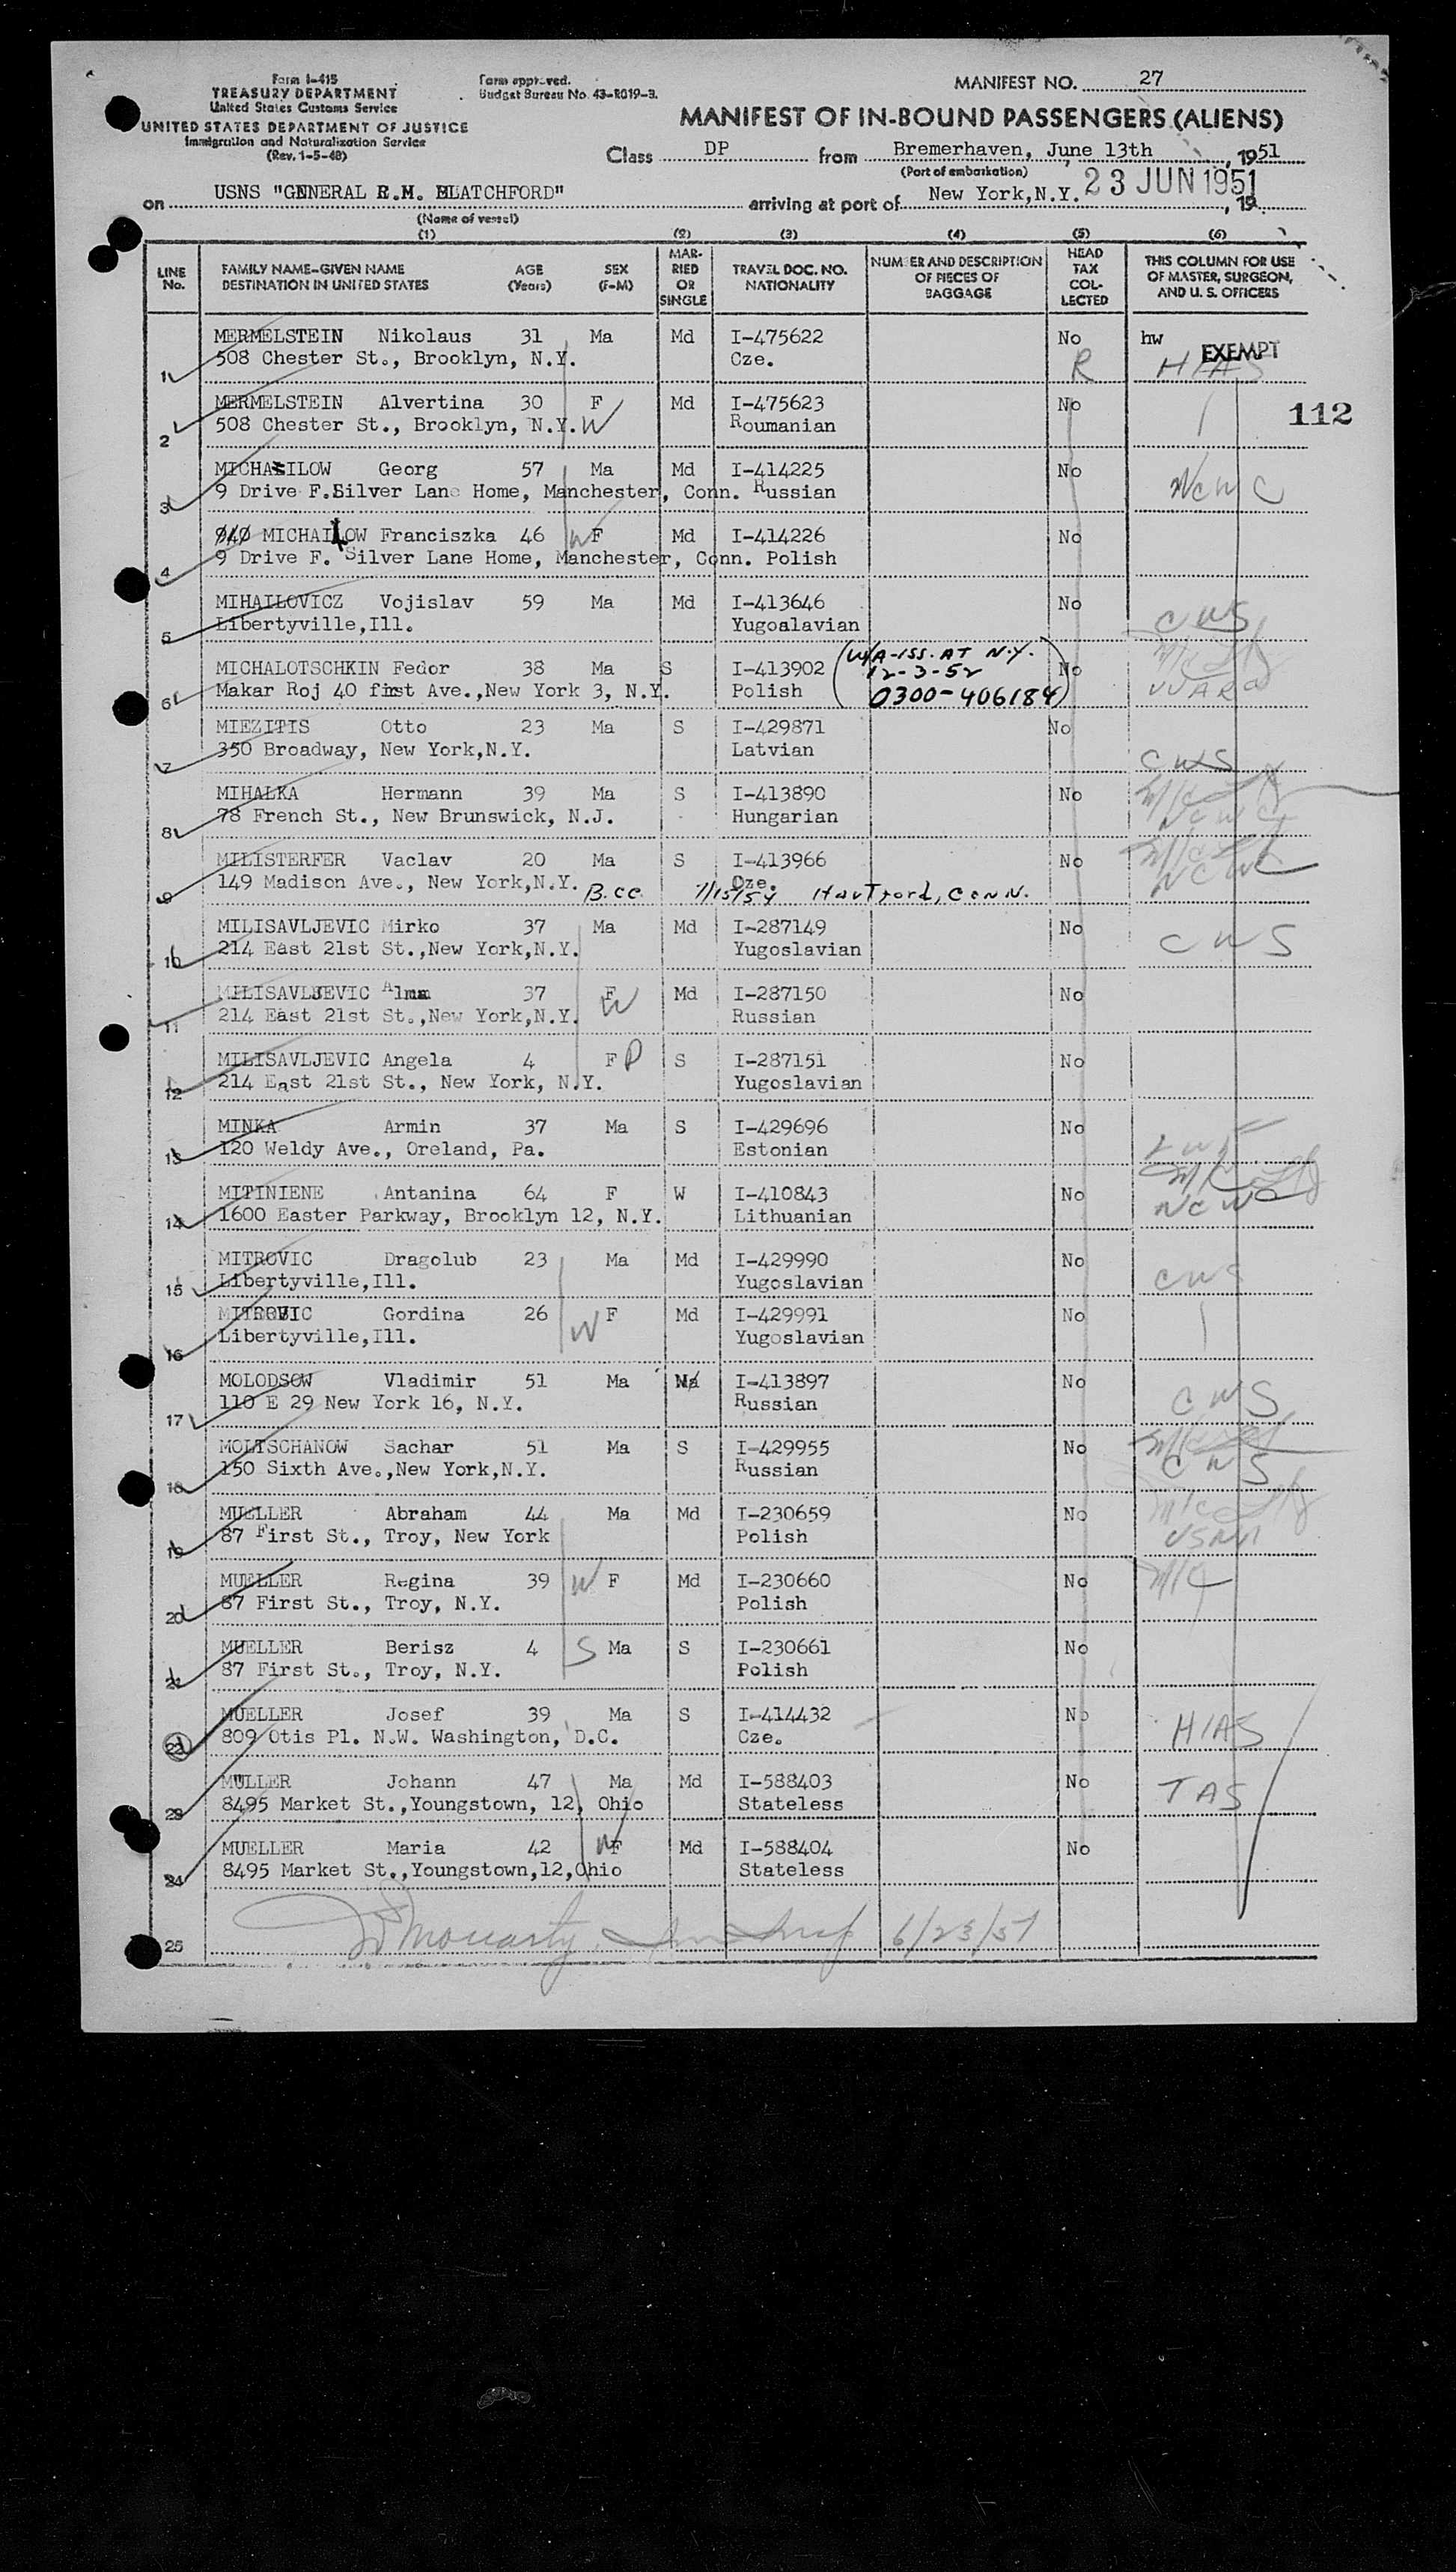 Form I-415
TREASURY DEPARTMENT
United States Customs Service
UNITED STATES DEPARTMENT OF JUSTICE
Immigration and Naturalization Service
(Rev. 1-5-48)
Form approved.
Budget Bureau No. 43-R019-3.
MANIFEST NO. 27
MANIFEST OF IN-BOUND PASSENGERS (ALIENS)
Class DP from Bremerhaven, June 13th, 1951
(Port of embarkation)
on USNS "GENERAL R.M. BLATCHFORD" arriving at port of New York,N.Y. 23 JUN 1951, 19
(Name of vessel)
(1) (2) (3) (4) (5) (6)
LINE No. FAMILY NAME-GIVEN NAME DESTINATION IN UNITED STATES AGE (Years) SEX (F-M) MARRIED OR SINGLE TRAVEL DOC. NO. NATIONALITY NUMBER AND DESCRIPTION OF PIECES OF BAGGAGE HEAD TAX COLLECTED THIS COLUMN FOR USE OF MASTER, SURGEON, AND U. S. OFFICERS
MERMELSTEIN Nikolaus 31 Ma Md I-475622 No hw EXEMPT
1 508 Chester St., Brooklyn, N.Y. Cze. R HIAS
MERMELSTEIN Alvertina 30 F Md I-475623 No 112
2 508 Chester St., Brooklyn, N.Y. W Roumanian
MICHAILOW Georg 57 Ma Md I-414225 No
3 9 Drive F.Silver Lane Home, Manchester, Conn. Russian NCWC
MICHAILOW Franciszka 46 W F Md I-414226 No
4 9 Drive F. Silver Lane Home, Manchester, Conn. Polish
MIHAILOVICZ Vojislav 59 Ma Md I-413646 No
5 Libertyville,Ill. Yugoalavian CWS
MICHALOTSCHKIN Fedor 38 Ma S I-413902 (W/A-ISS. AT N.Y. 12-3-52 No
6 Makar Roj 40 first Ave.,New York 3, N.Y. Polish 0300-406184)
MIEZITIS Otto 23 Ma S I-429871 No
7 350 Broadway, New York,N.Y. Latvian CWS
MIHALKA Hermann 39 Ma S I-413890 No
8 78 French St., New Brunswick, N.J. Hungarian NCWC
MILISTERFER Vaclav 20 Ma S I-413966 No
9 149 Madison Ave., New York,N.Y. Cze. NCWC
B.CC. 7/15/54 Hartford, CONN.
MILISAVLJEVIC Mirko 37 Ma Md I-287149 No
10 214 East 21st St.,New York,N.Y. Yugoslavian CWS
MILISAVLJEVIC Alma 37 F Md I-287150 No
11 214 East 21st St.,New York,N.Y. W Russian
MILISAVLJEVIC Angela 4 F D S I-287151 No
12 214 East 21st St., New York, N.Y. Yugoslavian
MINKA Armin 37 Ma S I-429696 No
13 120 Weldy Ave., Oreland, Pa. Estonian
MITINIENE Antanina 64 F W I-410843 No
14 1600 Easter Parkway, Brooklyn 12, N.Y. Lithuanian NCWC
MITROVIC Dragolub 23 Ma Md I-429990 No
15 Libertyville,Ill. Yugoslavian CWS
MITROVIC Gordina 26 F Md I-429991 No
16 Libertyville,Ill. W Yugoslavian
MOLODSOW Vladimir 51 Ma I-413897 No
17 110 E 29 New York 16, N.Y. Russian CWS
MOLTSCHANOW Sachar 51 Ma S I-429955 No
18 150 Sixth Ave.,New York,N.Y. Russian CWS
MUELLER Abraham 44 Ma Md I-230659 No
19 87 First St., Troy, New York Polish
MUELLER Regina 39 W F Md I-230660 No
20 87 First St., Troy, N.Y. Polish
MUELLER Berisz 4 S Ma S I-230661 No
21 87 First St., Troy, N.Y. Polish
MUELLER Josef 39 Ma S I-414432 No
22 809 Otis Pl. N.W. Washington, D.C. Cze. HIAS
MULLER Johann 47 Ma Md I-588403 No
23 8495 Market St.,Youngstown, 12, Ohio Stateless TAS
MUELLER Maria 42 W F Md I-588404 No
24 8495 Market St.,Youngstown,12,Ohio Stateless
25 Moriarty 6/23/51